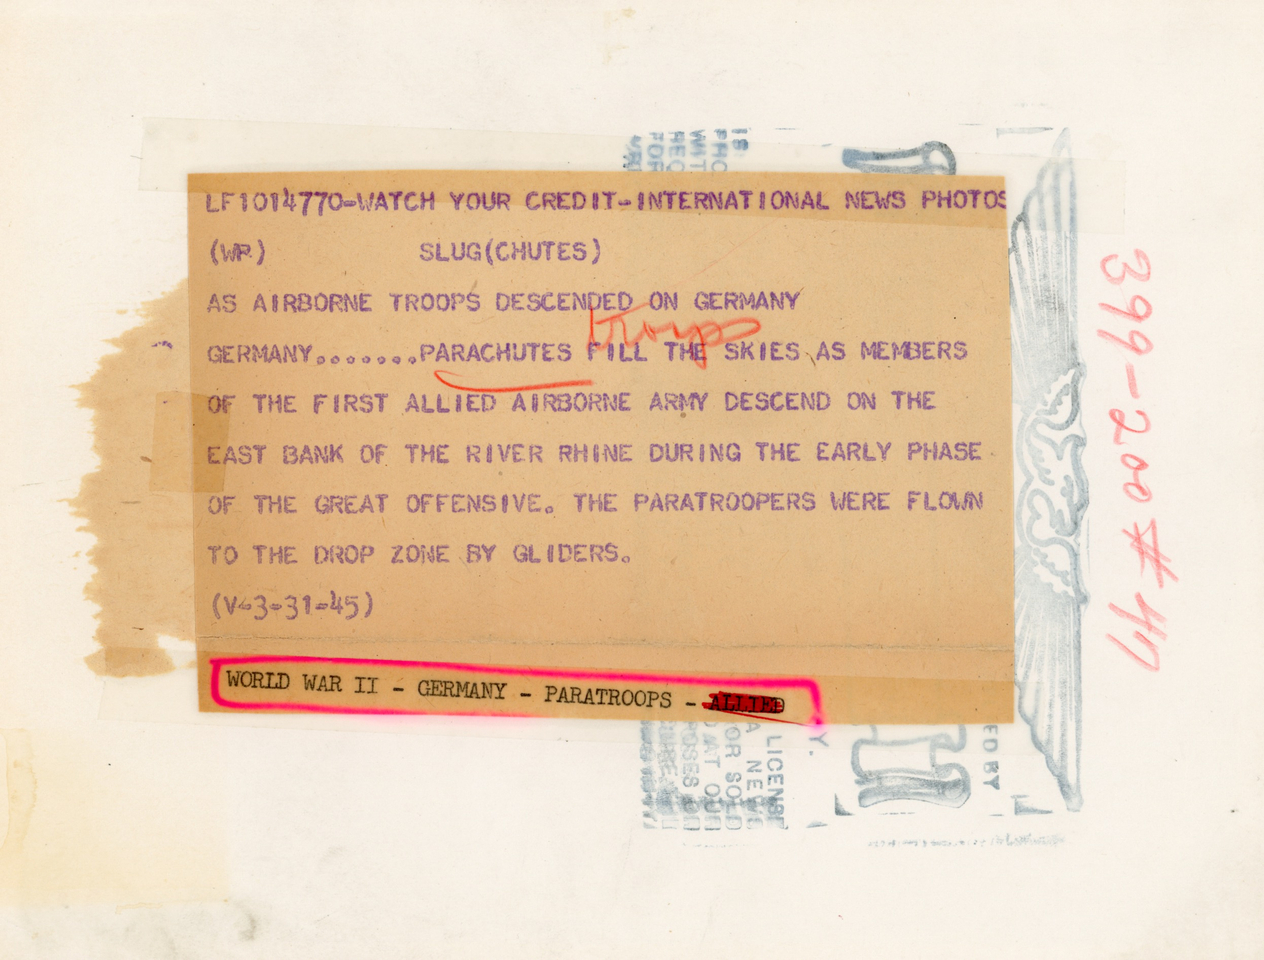 LF1014770-WATCH YOUR CREDIT-INTERNATIONAL NEWS PHOTOS
(WP) SLUG(CHUTES)
AS AIRBORNE TROOPS DESCENDED ON GERMANY
troops
GERMANY.......PARACHUTES FILL THE SKIES AS MEMBERS
OF THE FIRST ALLIED AIRBORNE ARMY DESCEND ON THE
EAST BANK OF THE RIVER RHINE DURING THE EARLY PHASE
OF THE GREAT OFFENSIVE. THE PARATROOPERS WERE FLOWN
TO THE DROP ZONE BY GLIDERS.
(V-3-31-45)
WORLD WAR II - GERMANY - PARATROOPS - ALLIED
399-200#47
ED BY
Y.
LICENSE
A NEWS
OR SOLD
AT OUR